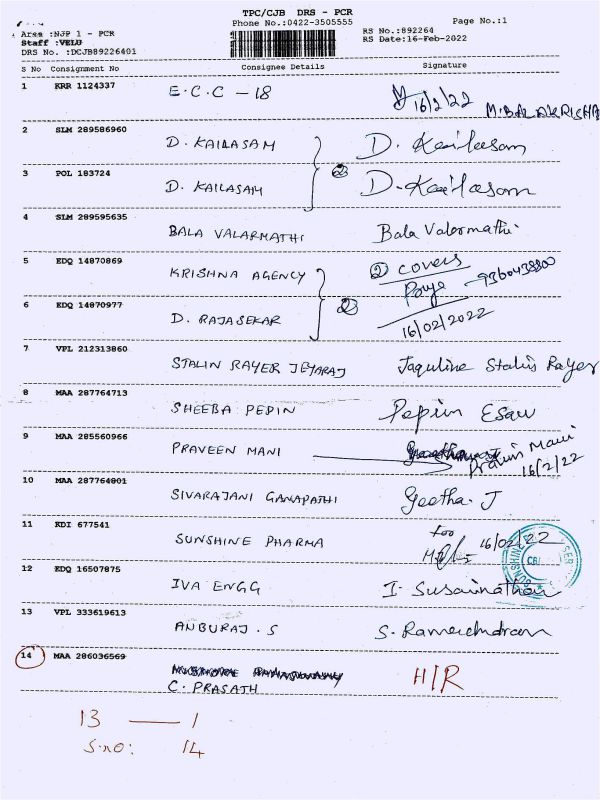 TPC/CJB DRS - PCR
Phone No.:0422-3505555
Page No.:1
Area :NJP 1 - PCR
Staff :VELU
DRS No. :DCJB89226401
RS No.:892264
RS Date:16-Feb-2022
S No Consignment No Consignee Details Signature
1 KRR 1124337 E.C.C - 18 16/2/22
M.BALAKRISHA
2 SLM 289586960 D. KAILASAM D. Kailasam
3 POL 183724 D. KAILASAM (2) D. Kailasam
4 SLM 289595635 BALA VALARMATHI Bala Valarmathi
5 EDQ 14870869 KRISHNA AGENCY (2) covers
6 EDQ 14870977 D. RAJASEKAR (2)
16/02/2022
7 VPL 212313860 STALIN RAYER JEYARAJ Jaquline Stalin Rayer
8 MAA 287764713 SHEEBA PEPIN Pepin Esau
9 MAA 285560966 PRAVEEN MANI Pravin Mani
16/2/22
10 MAA 287764801 SIVARAJANI GANAPATHI Geetha. J
11 KDI 677541 SUNSHINE PHARMA 16/02/22
12 EDQ 16507875 IVA ENGG I. Susainathan
13 VPL 333619613 ANBURAJ. S S. Ramachndran
14 MAA 286036569 H/R
C. PRASATH
13 — 1
S.no: 14